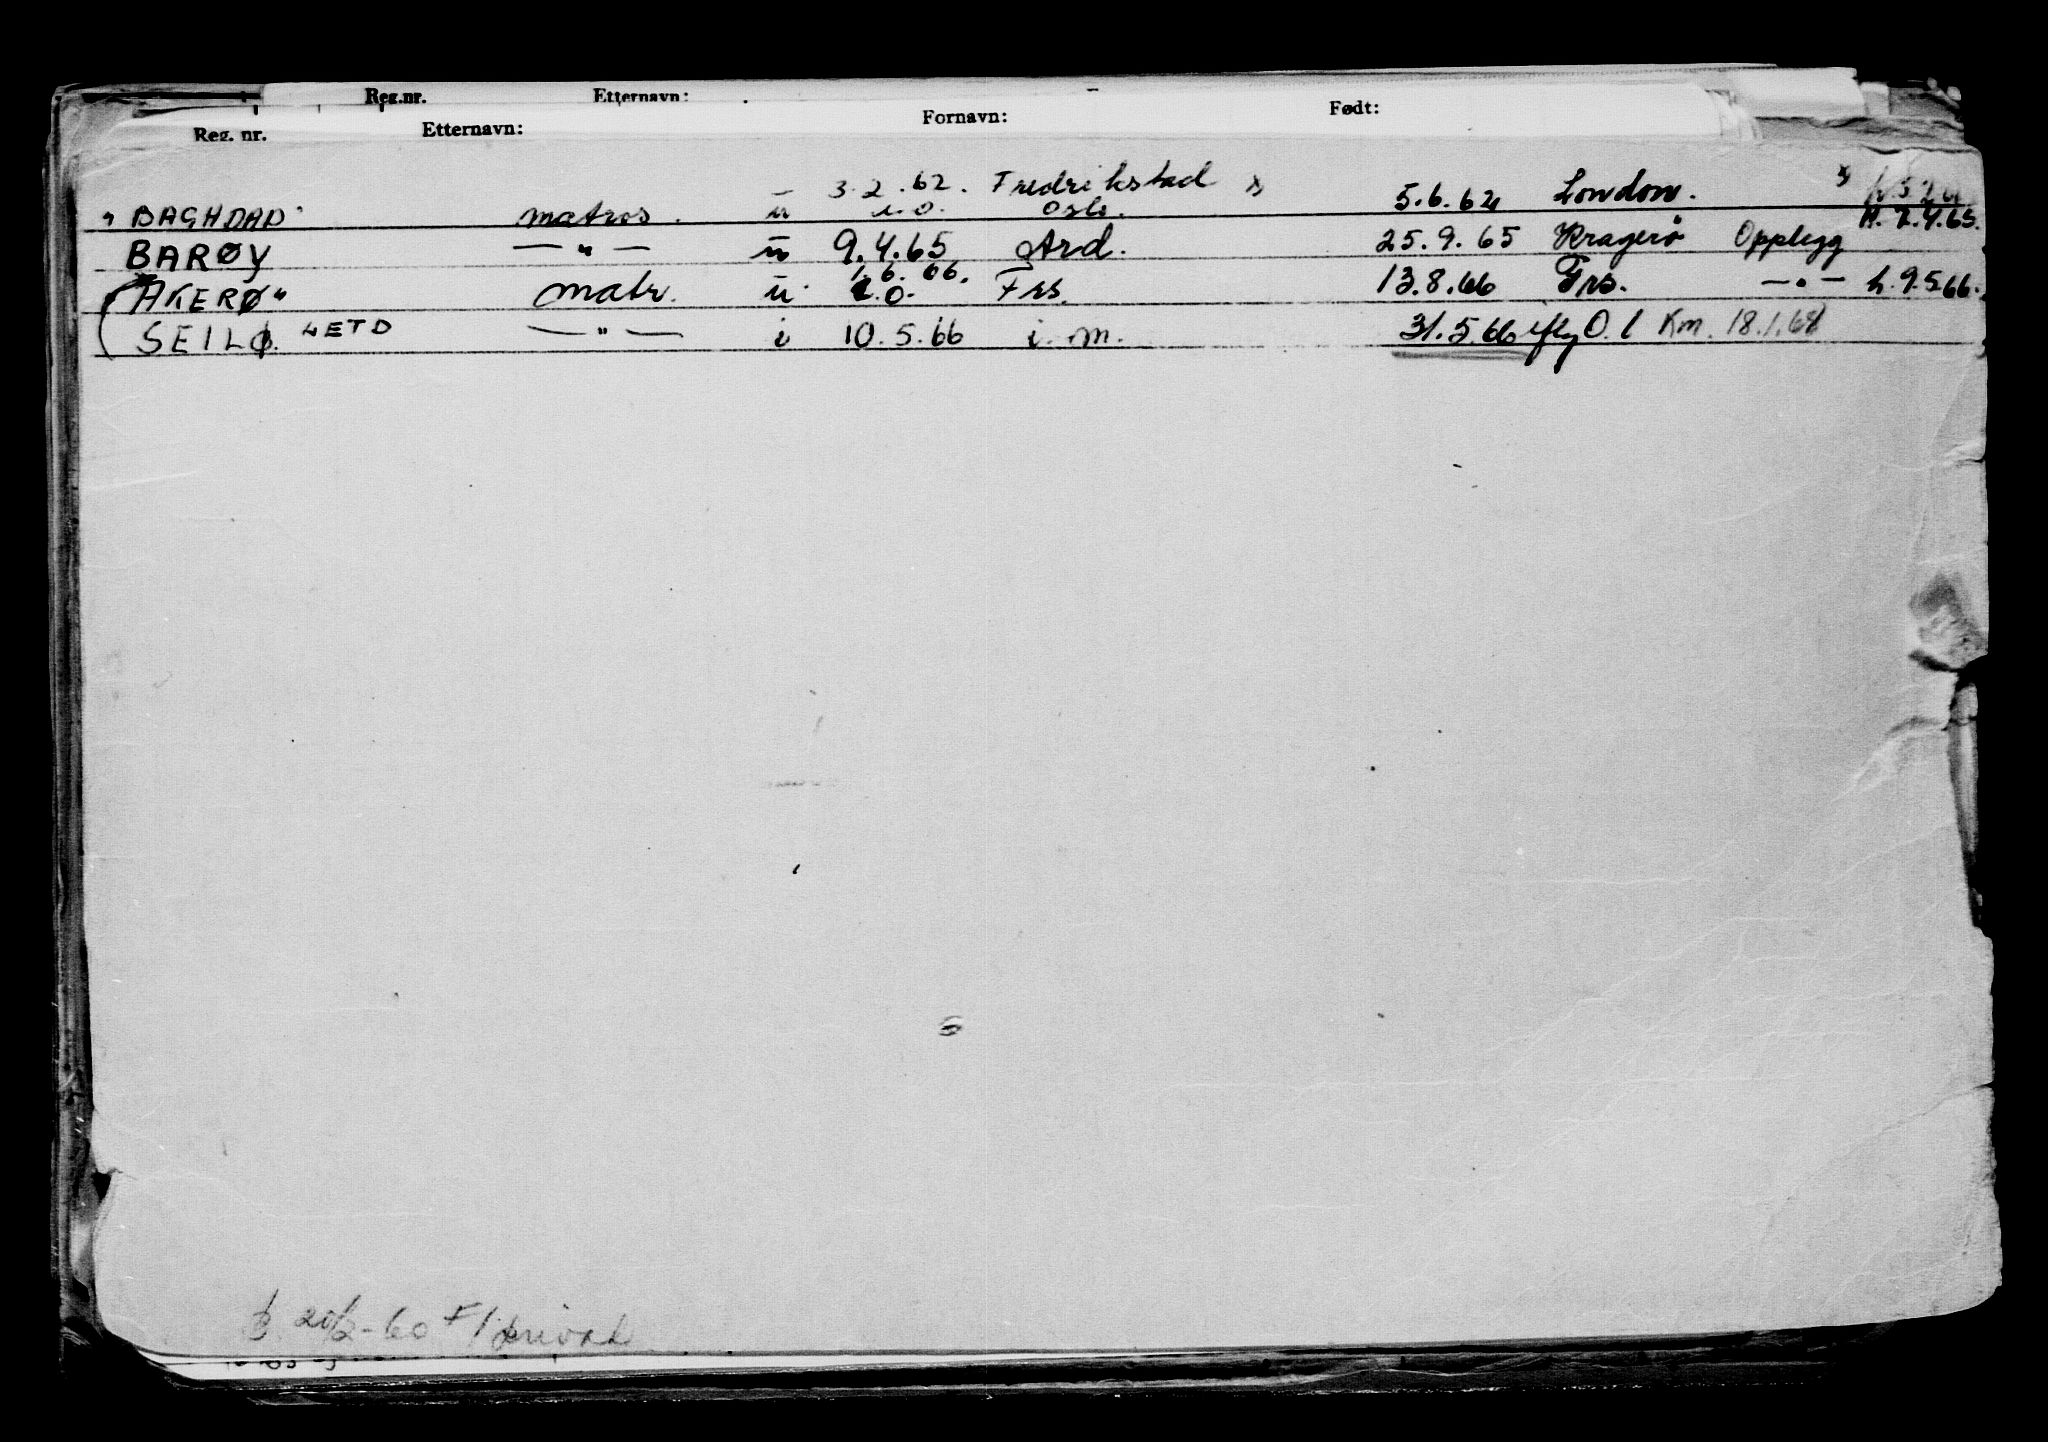 Reg.nr. Etternavn:
Reg. nr. Etternavn: Fornavn: Født:
- 3.2.62. Fredrikstad
"BAGHDAD" matros. u i.o. Oslo. 5.6.62 London.
H. 2.4.65.
BARØY — " — u 9.4.65 Ard. 25.9.65 Kragerø Opplegg
1.6.66.
AKERØ" matr. u i.o. Frs. 13.8.66 Frs. — " — h. 9.5.66.
SEILØ. LETD — " — i 10.5.66 i. m. 31.5.66 Km. 18.1.68
20/2-60 F/ privat